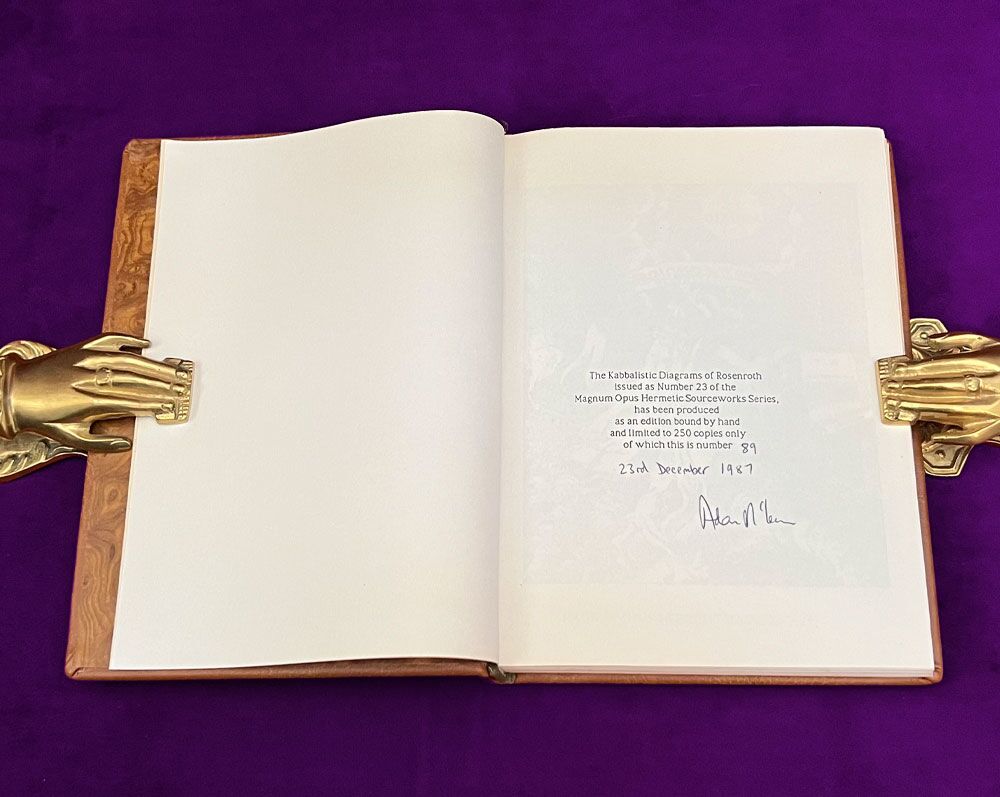 The Kabbalistic Diagrams of Rosenroth
issued as Number 23 of the
Magnum Opus Hermetic Sourceworks Series,
has been produced
as an edition bound by hand
and limited to 250 copies only
of which this is number 89
23rd December 1987
Adam McLean